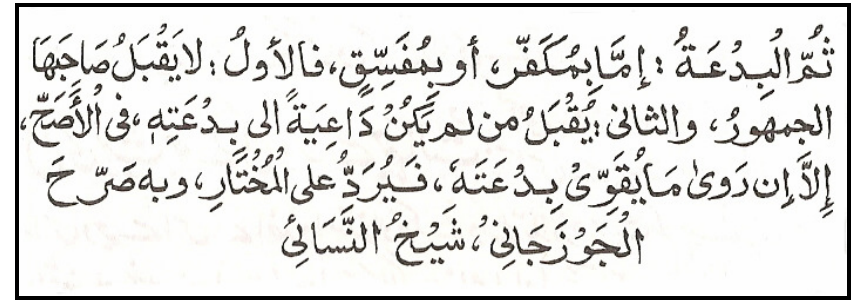 ثُمَّ الْبِدْعَةُ : إِمَّا بِمُكَفِّرٍ، أو بِمُفَسِّقٍ، فالأولُ : لا يَقْبَلُ صَاحِبَهَا
الجمهورُ، والثانى : يُقْبَلُ من لم يَكُنْ دَاعِيَةً الى بِدْعَتِهِ، فى الْأَصَحِّ،
إِلاَّ إن رَوىٰ مَا يُقَوِّىْ بِدْعَتَهٗ، فَيُرَدُّ على الْمُخْتَارِ، وبه صَرَّحَ
الْجَوْزَجَانِىُّ، شَيْخُ النَّسَائِىِّ